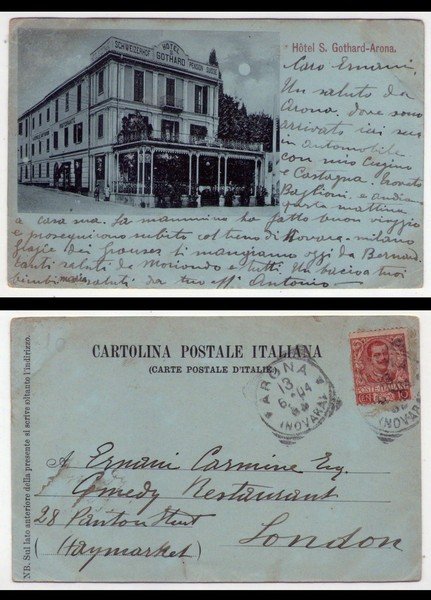 SCHWEIZERHOF HÔTEL PENSION SUISSE
S. GOTHARD
Hôtel S. Gothard-Arona.
Caro Ernani,
Un saluto da
Arona, dove sono
arrivato ieri sera
in automobile
con mio Cugino
e Castagna.
Baglioni, e
mattina
a casa sua. La mammina ha fatto buon viaggio
e proseguirono subito col treno di Novara-Milano
ti mangiamo oggi da
tanti saluti da e tutti. Un bacio a tuoi
bimbi. saluti da tuo aff Antonio
CARTOLINA POSTALE ITALIANA
(CARTE POSTALE D'ITALIE)
NB. Sul lato anteriore della presente si scrive soltanto l'indirizzo.
ARONA
13
6-04
(NOVARA)
POSTE ITALIANE
CEN 10
(NOVARA)
A Ernani Carmine Esq.
Comedy Restaurant
28 Panton Street
(Haymarket)
London